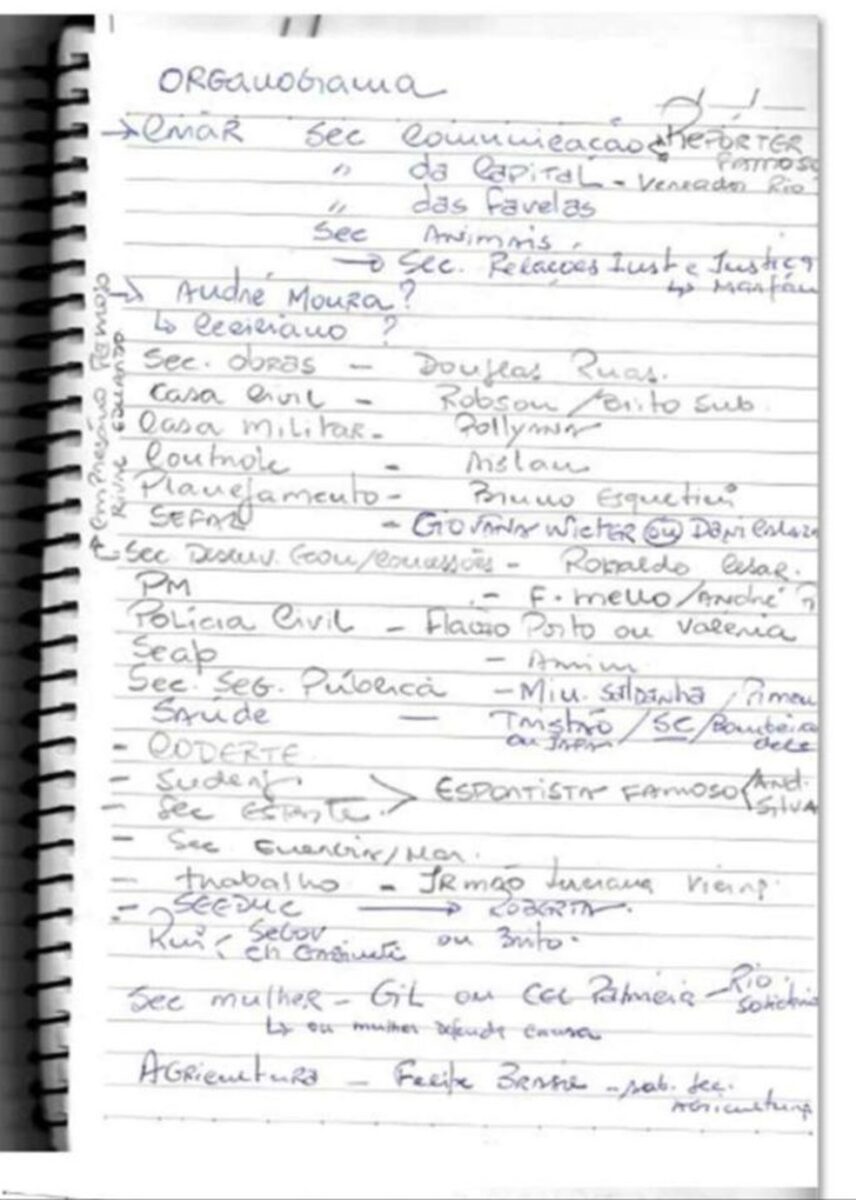 ORGANOGRAMA
→ CRIAR Sec Comunicação REPÓRTER FAMOSO
" da Capital - Vereador Rio
" das Favelas
Sec Animais
→ Sec. Relações Inst e Justiça
↳ Marfan
→ André Moura?
↳ ?
Sec. Obras - Douglas Ruas.
Casa Civil - Robson / Brito Sub.
Casa Militar - Pollyana
Controle - Aislan
Planejamento - Bruno
SEFAZ - GIOVANA ou Dani
Sec Desenv. Econ/Concessões - Ronaldo Cesar.
Empresário Famoso
EDUARDO
PM - F. Mello / André ?
Polícia Civil - Flavio Porto ou Valeria
Seap - Amim
Sec. Seg. Pública - Min. Saldanha /
Saúde - Tristão / SC / Bombeiro
ou dele
- CODERTE
- Suderj
- Sec Esporte > ESPORTISTA FAMOSO < And. Silva
- Sec Energia/Mar.
- trabalho - IRMÃO Luciana Vieira.
- SEEDUC → ROBERTA.
Rui < Segov ou Brito.
Ch Gabinete
Sec mulher - Gil ou Cel Palmeira - Rio Solidário
↳ ou mulher defende causa
Agricultura - Felipe Brasil - sub. Sec. Agricultura